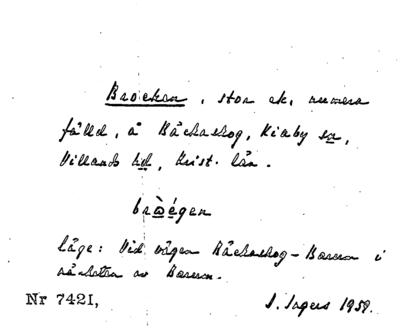 Brocken, stor ek, numera
fälld, å Bäckaskog, Kiaby sn,
Villands hd, Krist. län.
bròégen
läge: Vid vägen Bäckaskog - Barum i
närheten av Barum.
Nr 7421, I. Ingers 1958.